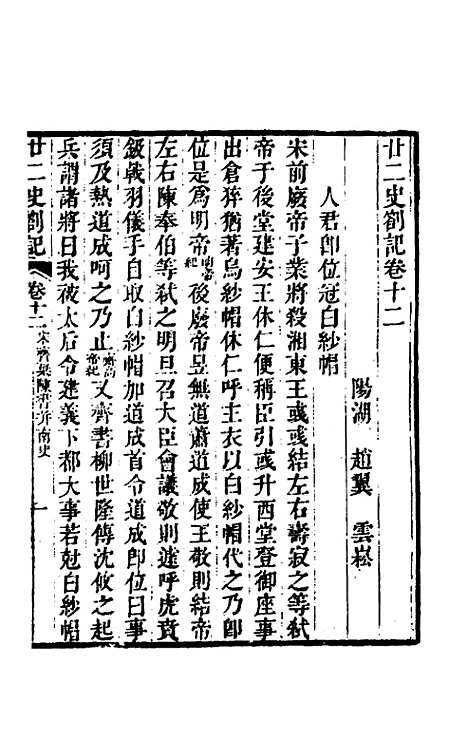 廿二史劄記卷十二
陽湖 趙翼 雲崧
人君卽位冠白紗帽
宋前廢帝子業將殺湘東王彧彧結左右壽寂之等弑
帝于後堂建安王休仁便稱臣引彧升西堂登御座事
出倉猝猶著烏紗帽休仁呼主衣以白紗帽代之乃卽
位是爲明帝明帝紀後廢帝昱無道蕭道成使王敬則結帝
左右陳奉伯等弑之明旦召大臣會議敬則遽呼虎賁
鈒戟羽儀手自取白紗帽加道成首令道成卽位曰事
須及熱道成呵之乃止齊高帝紀又齊書柳世隆傳沈攸之起
兵謂諸將曰我被太后令建義下都大事若尅白紗帽
廿二史劄記 卷十二 宋齊梁陳書并南史 一